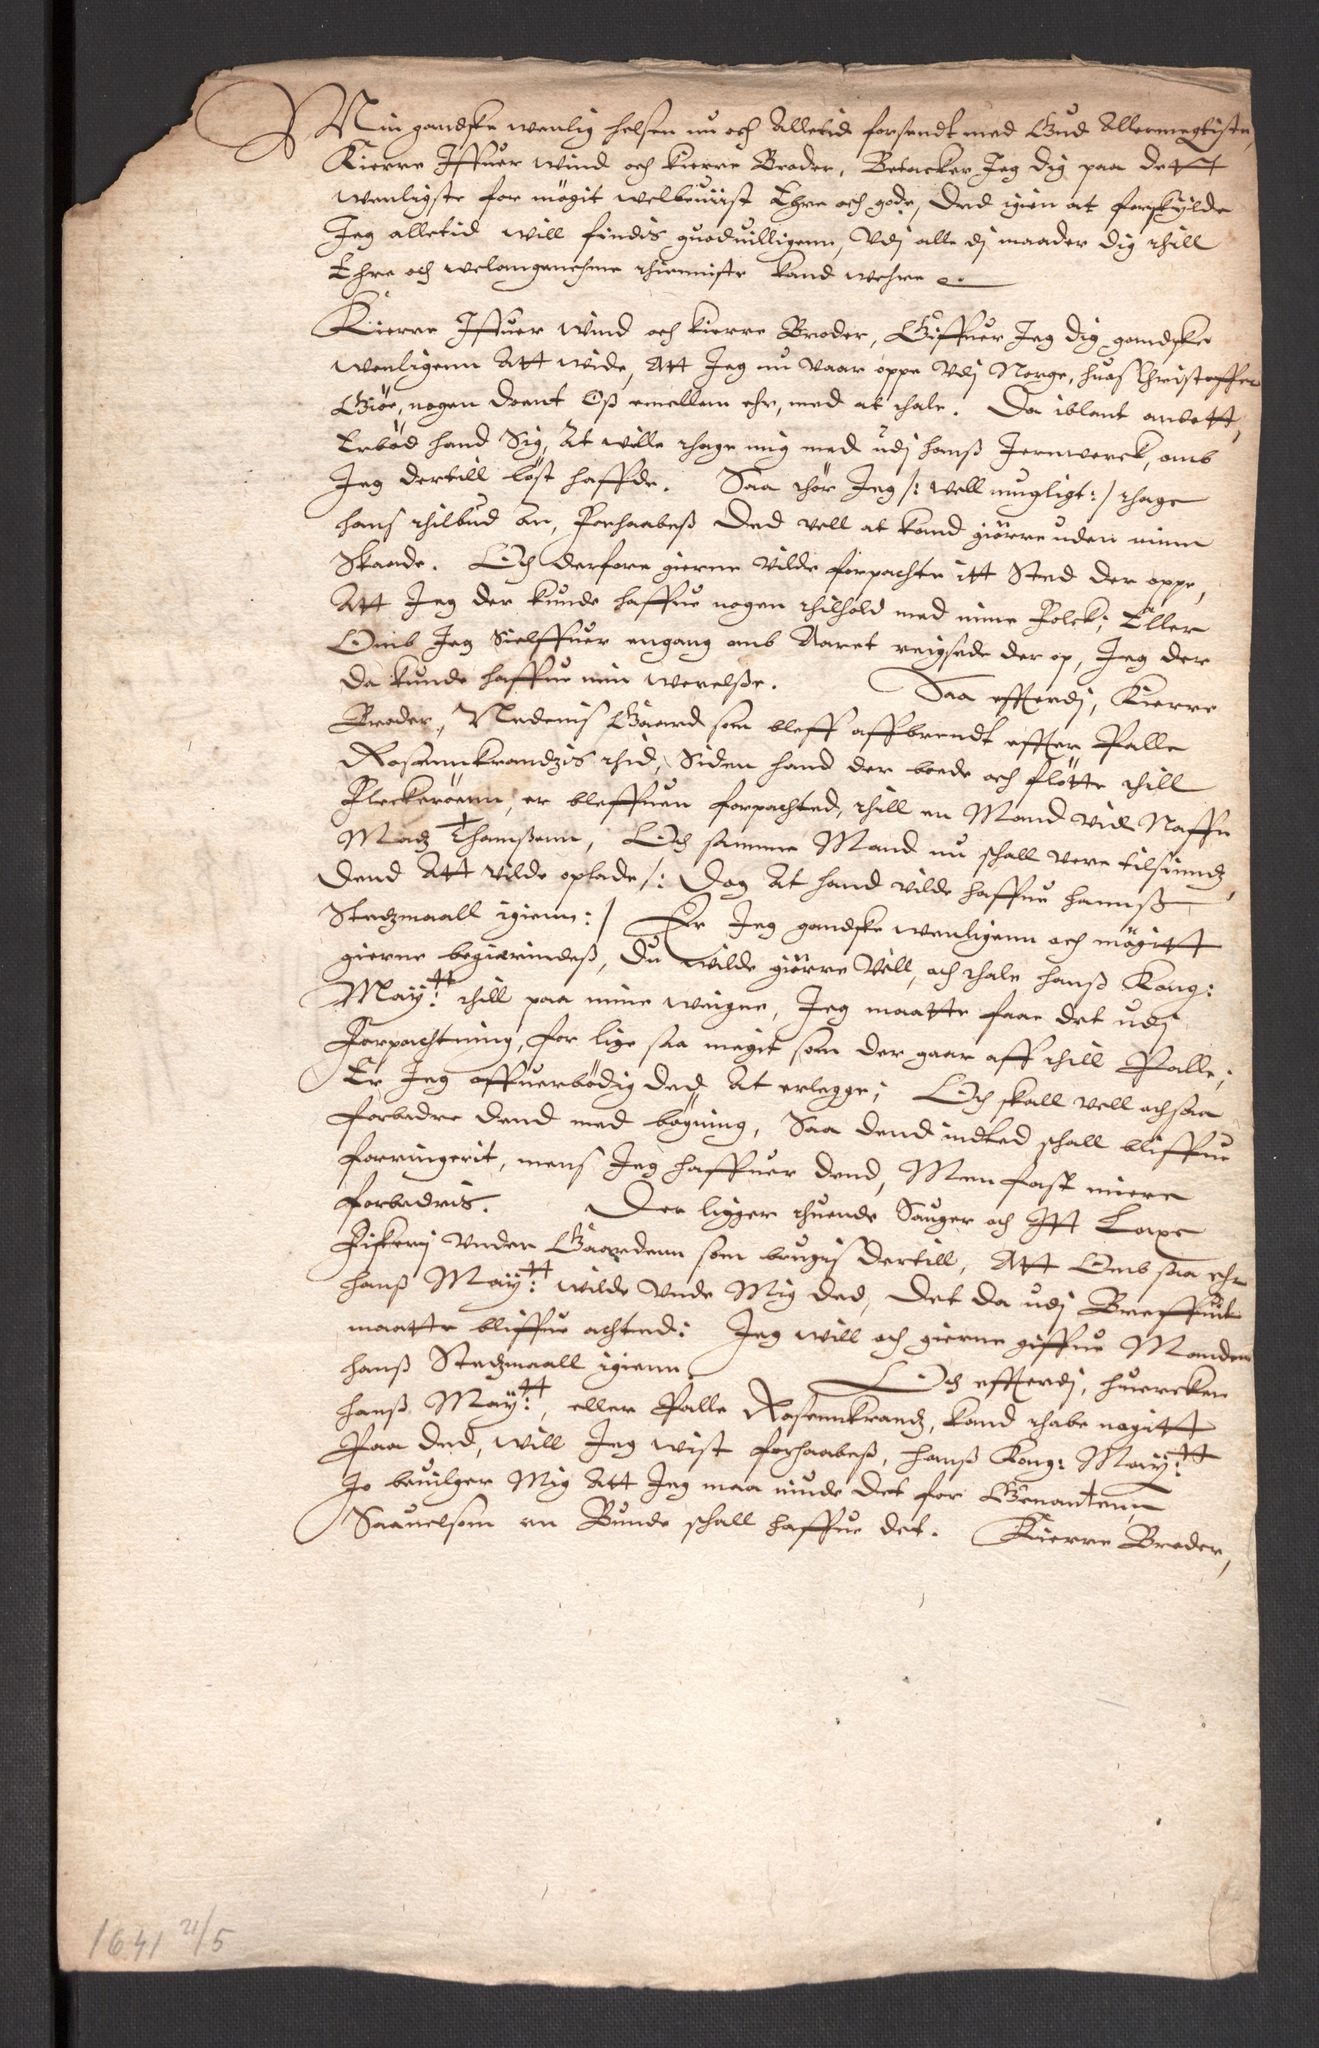 Min gandske wenlig helsen nu och Alletid forsendt med Gud Allermegtiste,
Kierre Iffuer Wind och kierre Broder, Betacker Jeg dig paa dett
wenligste for mögit welbeuist Ehre och gode, Ded igien at forskylde
Jeg alletid will findis guoduilligenn, Vdj alle dj maader dig thill
Ehre och welangenehme thienniste kand wehre
Kierre Iffuer Wind och kierre Broder, Giffuer Jeg dig gandske
wenligenn Att wide, Att Jeg nu vaar oppe Vdj Norge, huos Christoffer
Giöe, nogen doent Oss emellem ehr, med at thale. Da iblant andett,
Erböd hand Sig, At wille thage mig med udj hanss Jernwerck, omb
Jeg dertill löst haffde. Saa thör Jeg /: well mugligt :/ thage
hans thilbud an, Forhaabess Ded vell at kand giörre uden minn
Skaade. Och derfore gierne vilde forpachte itt Sted der oppe,
Att Jeg der kunde haffue nogen thilhold med mine Folck, Eller
Omb Jeg Sielffuer engang omb Aaret reigsede der op, Jeg der
da kunde haffue min werelsse. Saa efftterdj, Kierre
Broder, Nedenis Gaard som bleff affbrendt effter Palle
Rosennkrandzis thid, Siden hand der boede och flötte thill
Fleckeröenn, er bleffuen forpachted, thill en Mand vid Naffn
Madz Thamssenn, Och samme Mand nu schall vere tilsindz
Dend Att vilde oplade /: Dog At hand vilde haffue hanss
Stedzmaall igienn :/ Er Jeg gandske wenligenn och mögitt
gierne begierindess, Du wilde giörre Vell, och thale hanss Kong:
May:tt thill paa mine weigne, Jeg maatte faae det udj
Forpachtning, for lige saa megit som der gaar aff thill Palle,
Er Jeg offuerbödig ded At erlegge; Och skall vell ochsaa
forbedre dend med bögning, Saa dend indted schall bliffue
forringerit, mens Jeg haffuer dend, Men fast miere
forbedris. Der ligger thuende Sauger och Itt Laxe
Fiskerj Vnder Gaardenn som brugis dertill, Att Omb saa ehr
hanss May:tt wilde Vnde Mig ded, Det da udj Breffuit
maatte bliffue achted: Jeg will och gierne giffue Manden
hanss Stedzmaall igienn. Och effterdj, huercken
hanss May:tt, eller Palle Rosennkrandz, kand thabe nogitt
Paa ded, will Jeg wist forhaabess, hanss Kong: May:tt
Jo beuilger Mig Att Jeg maa niude det for Genanten
Saauelsom en Bunde schall haffue det. Kierre Broder,
1641 21/5